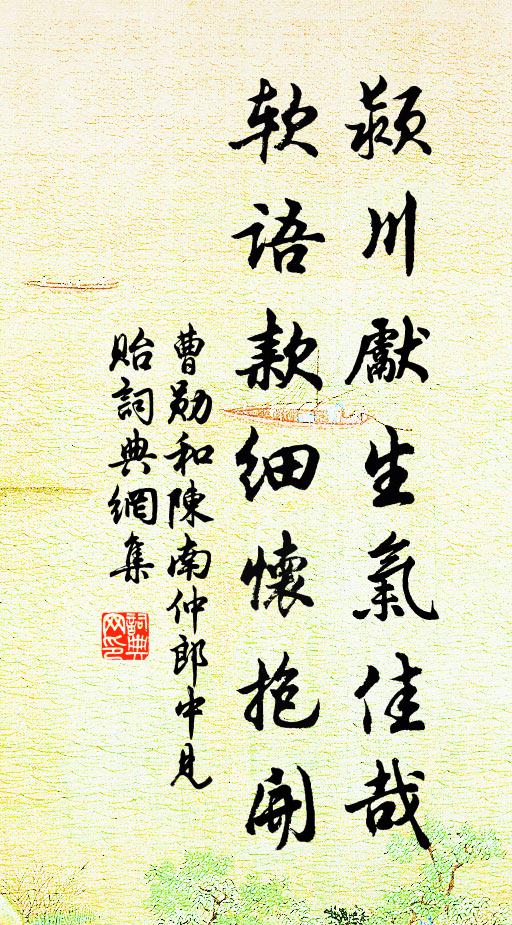 颍川獻生氣佳哉
软語款细懷抱開
曹勛和陳南仲郎中見
貽詞典網集
詞典网印